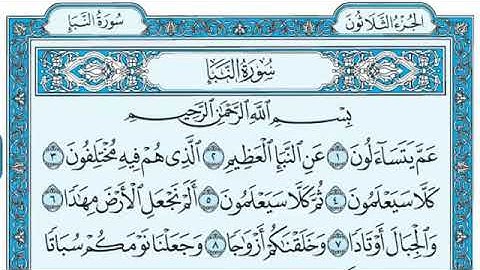 الجُزْءُ الثَّلَاثُونَ
سُورَةُ النَّبَإِ
سُورَةُ النَّبَإِ
بِسْمِ ٱللَّهِ ٱلرَّحْمَٰنِ ٱلرَّحِيمِ
عَمَّ يَتَسَآءَلُونَ ١ عَنِ ٱلنَّبَإِ ٱلْعَظِيمِ ٢ ٱلَّذِى هُمْ فِيهِ مُخْتَلِفُونَ ٣
كَلَّا سَيَعْلَمُونَ ٤ ثُمَّ كَلَّا سَيَعْلَمُونَ ٥ أَلَمْ نَجْعَلِ ٱلْأَرْضَ مِهَٰدًا ٦
وَٱلْجِبَالَ أَوْتَادًا ٧ وَخَلَقْنَٰكُمْ أَزْوَٰجًا ٨ وَجَعَلْنَا نَوْمَكُمْ سُبَاتًا